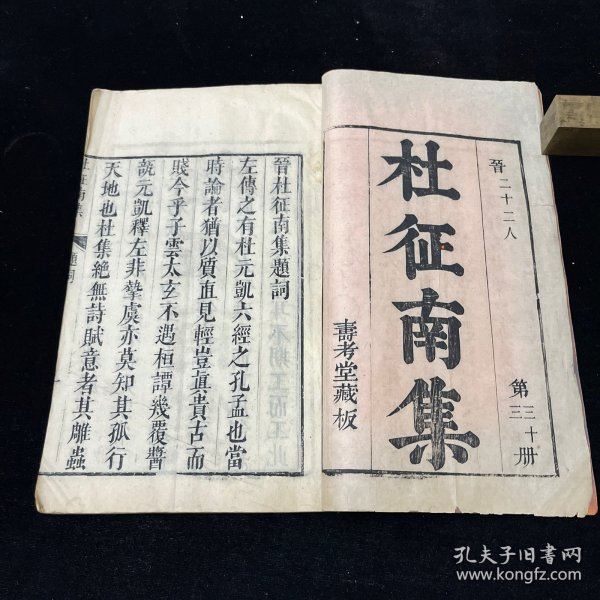 晉二十二人
第三十三册
杜征南集
壽考堂藏板
晉杜征南集題詞
左傳之有杜元凱六經之孔孟也當
時論者猶以質直見輕豈真貴古而
賤今乎子雲太玄不遇桓譚幾覆醬
瓿元凱釋左非摯虞亦莫知其孤行
天地也杜集絕無詩賦意者其雕蟲
題詞
孔夫子旧书网
www.kongfz.com